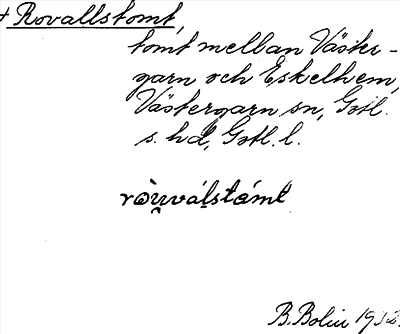 + Rovallstomt,
tomt mellan Väster-
garn och Eskelhem,
Västergarn sn, Gotl.
s. hd, Gotl. l.
ròu̯válstómt
B. Bolin